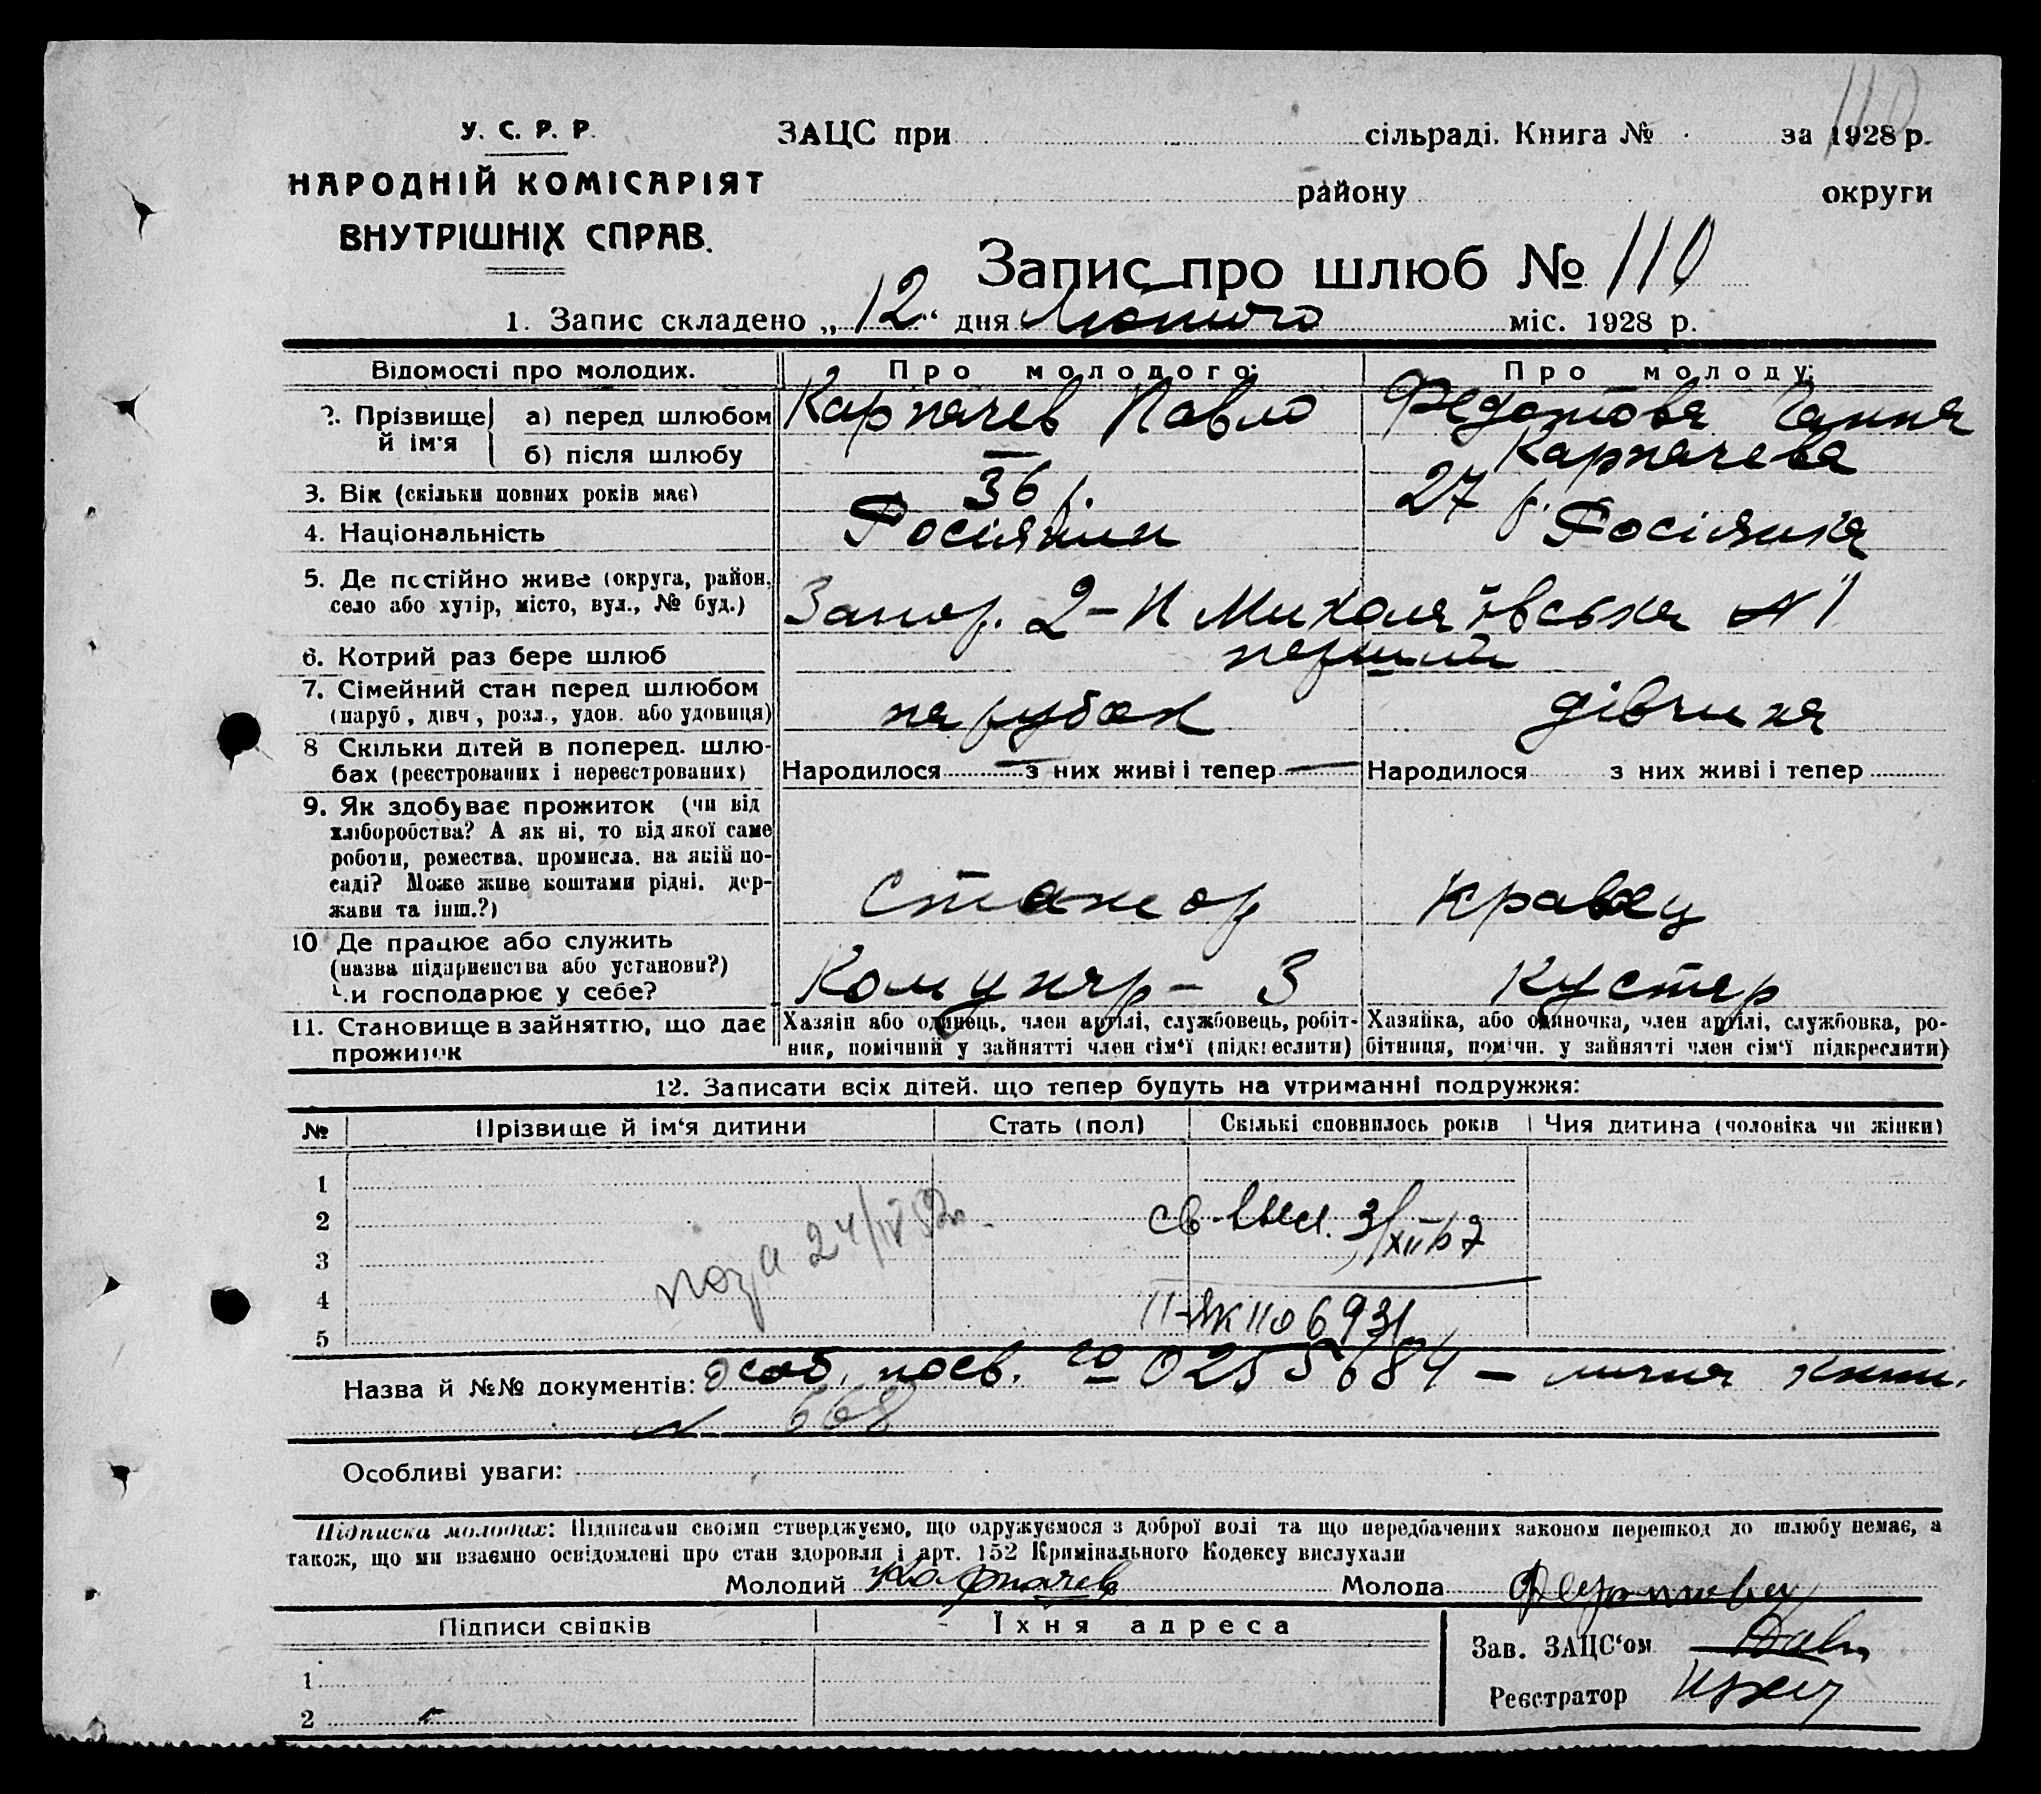 110
У. С. Р. Р.
НАРОДНІЙ КОМІСАРІЯТ
ВНУТРІШНІХ СПРАВ.
ЗАЦС при сільраді. Книга № за 1928 р.
району округи
Запис про шлюб № 110
1. Запис складено „12“ дня Лютого міс. 1928 р.
Відомості про молодих. Про молодого: Про молоду:
2. Прізвище й ім'я а) перед шлюбом Карпачев Павло Федотова Ганна
б) після шлюбу — Карпачева
3. Вік (скільки повних років має) 36 р. 27 р.
4. Національність Росіянин Росіянка
5. Де постійно живе (округа, район, село або хутір, місто, вул., № буд.) Запор. 2-й Михолаївська № 1
6. Котрий раз бере шлюб перший
7. Сімейний стан перед шлюбом (паруб, дівч., розл., удов. або удовиця) парубок дівчина
8 Скільки дітей в поперед. шлюбах (реєстрованих і нереєстрованих) Народилося — з них живі і тепер — Народилося з них живі і тепер
9. Як здобуває прожиток (чи від
хліборобства? А як ні, то від якої саме
роботи, ремества, промисла, на якій по-
саді? Може живе коштами рідні, дер-
жави та інш.?) кравец
10 Де працює або служить
(назва підприємства або установи?)
Чи господарює у себе? Комунар - 3 Кустар
11. Становище в зайняттю, що дає прожиток
Хазяїн або одинець, член артілі, службовець, робіт-
ник, помічний у зайнятті член сім'ї (підкреслити)
Хазяйка, або одиночка, член артілі, службовка, ро-
бітниця, помічн. у зайнятті член сім'ї підкреслити)
12. Записати всіх дітей, що тепер будуть на утриманні подружжя:
№ Прізвище й ім'я дитини Стать (пол) Скількі сповнилось років Чия дитина (чоловіка чи жінки)
1
2
3
4
5
24/IV 52
св. 3/XII
II-ЯК 110693
Назва й №№ документів: Особ. посв. 0255684 — лична книж.
№ 668
Особливі уваги:
Підписка молодих: Підписами своїми стверджуємо, що одружуємося з доброї волі та що передбачених законом перешкод до шлюбу немає, а
також, що ми взаємно освідомлені про стан здоровля і арт. 152 Кримінального Кодексу вислухали
Молодий Карпачев Молода Федотова
Підписи свідків Їхня адреса
1
2
Зав. ЗАЦС'ом
Реєстратор